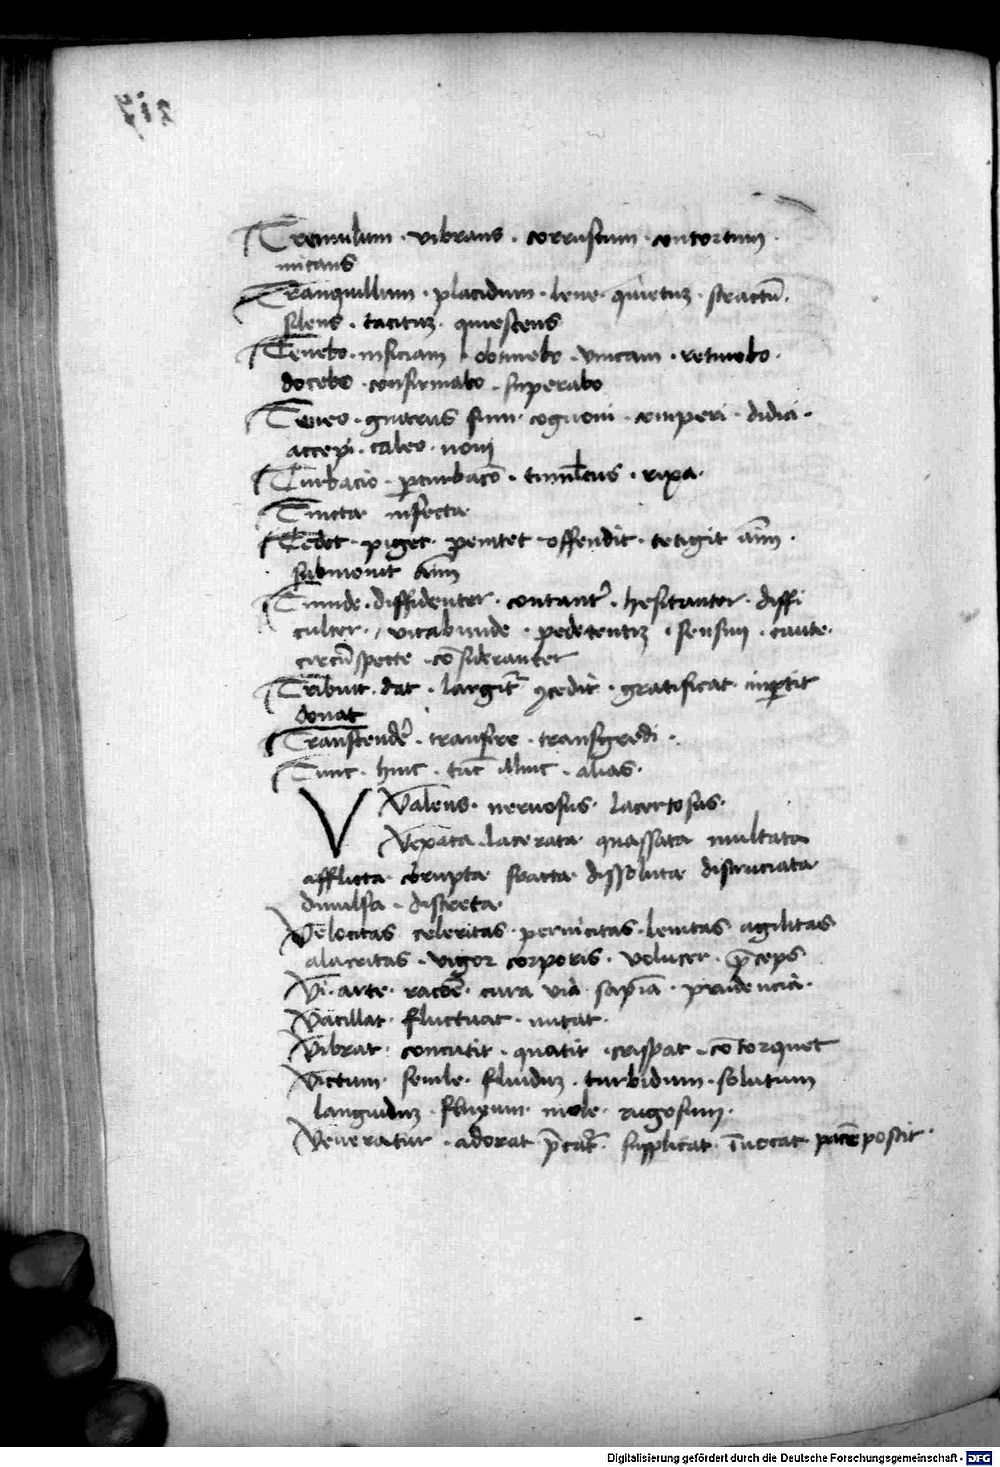 Tremulum · vibrans · corruscum · contortum ·
micans
Tranquillum · placidum · lene · quietuz · stractū ·
silens · tacituz · quiescens
Tenebo · inficiam · obtinebo · vincam · retinebo ·
docebo · confirmabo · superabo
Teneo · gnarus sum · cognovi · comperi · didici ·
accepi · caleo · novi
Turbacio · pturbacō · tumultus · rixa ·
Tincta infecta
Tedet · piget · penitet · offendit · tetigit aīm ·
submovit aīm
Timide · diffidenter · contant · hesitanter · diffi
culter · vitabunde · pedetentiz · sensim · caute ·
circūspecte · cōsideranter
Tribuit · dat · largit · ɔcedit · gratificat · impartit
donat
Transcender · transire · transgredi ·
Tunc · hinc · tūc illinc · alias ·
Valens · nervosus · lacertosus ·
Vexata · lacerata · quassata multata
afflicta · corupta · fracta · dissoluta discruciata
divulsa · discreta ·
Velocitas · celeritas · pernicitas · levitas agilitas
alacritas · vigor corporis · volucer · pceps
Vi · arte · racōe · cura via sapīa · prudencia ·
Vacillat · fluctuat · nutat ·
Vibrat · concutit · quatit · crispat · cōtorquet
Victum · senile · fluiduz · turbidum · solutum
languiduz · fluxum · mole · rugosum ·
Veneratur · adorat · pcat · supplicat · īvocat pacē poscit ·
Digitalisierung gefördert durch die Deutsche Forschungsgemeinschaft - DFG